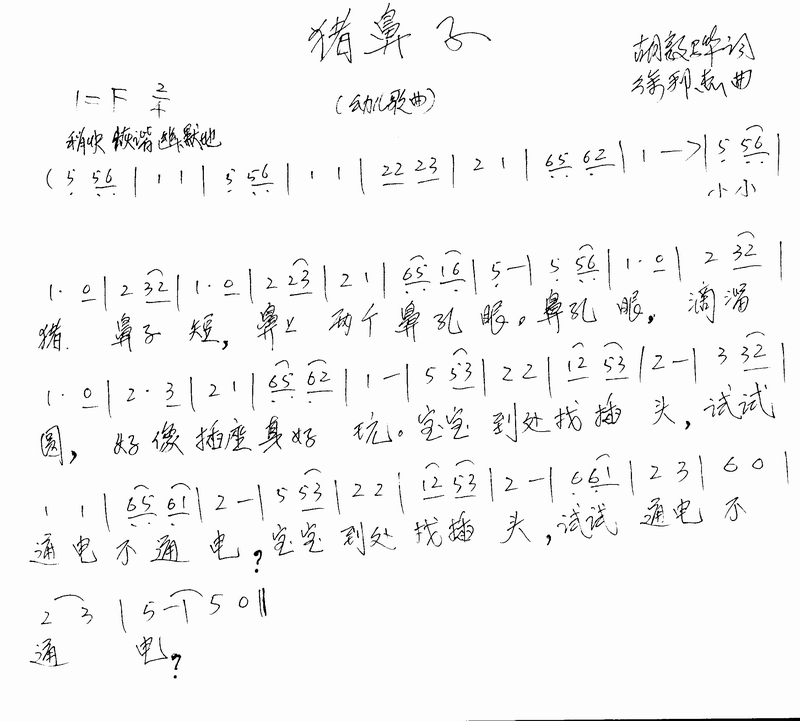 猪鼻子
词
曲
1=F 2/4
(幼儿歌曲)
稍快 诙谐幽默地
(5 56 | 1 1 | 5 56 | 1 1 | 22 23 | 2 1 | 65 62 | 1 —>| 5 56 |
小小
1· 0 | 2 32 | 1· 0 | 2 23 | 2 1 | 65 16 | 5 — | 5 56 | 1· 0 | 2 32 |
猪 鼻子 短, 鼻上 两个 鼻孔 眼。鼻孔 眼, 滴溜
1· 0 | 2· 3 | 2 1 | 65 62 | 1 — | 5 53 | 2 2 | 12 53 | 2 — | 3 32 |
圆, 好像 插座 真好 玩。宝宝 到处 找插 头, 试试
1 1 | 65 61 | 2 — | 5 53 | 2 2 | 12 53 | 2 — | 6 61 | 2 3 | 6 0 |
通电 不通 电? 宝宝 到处 找插 头, 试试 通电 不
2 3 | 5 — | 5 0 ‖
通 电?